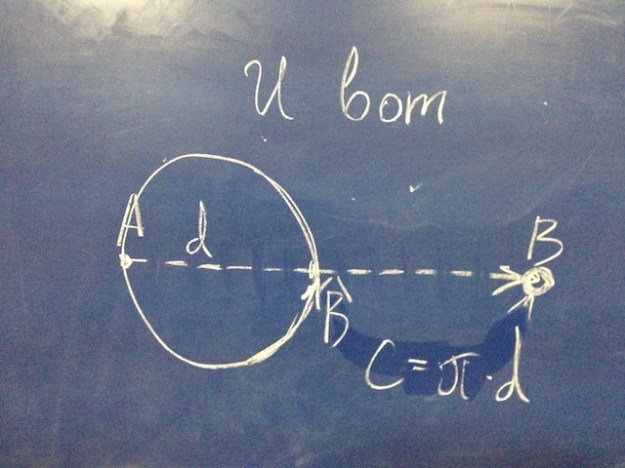 И вот
A
d
B
B
C = π · d